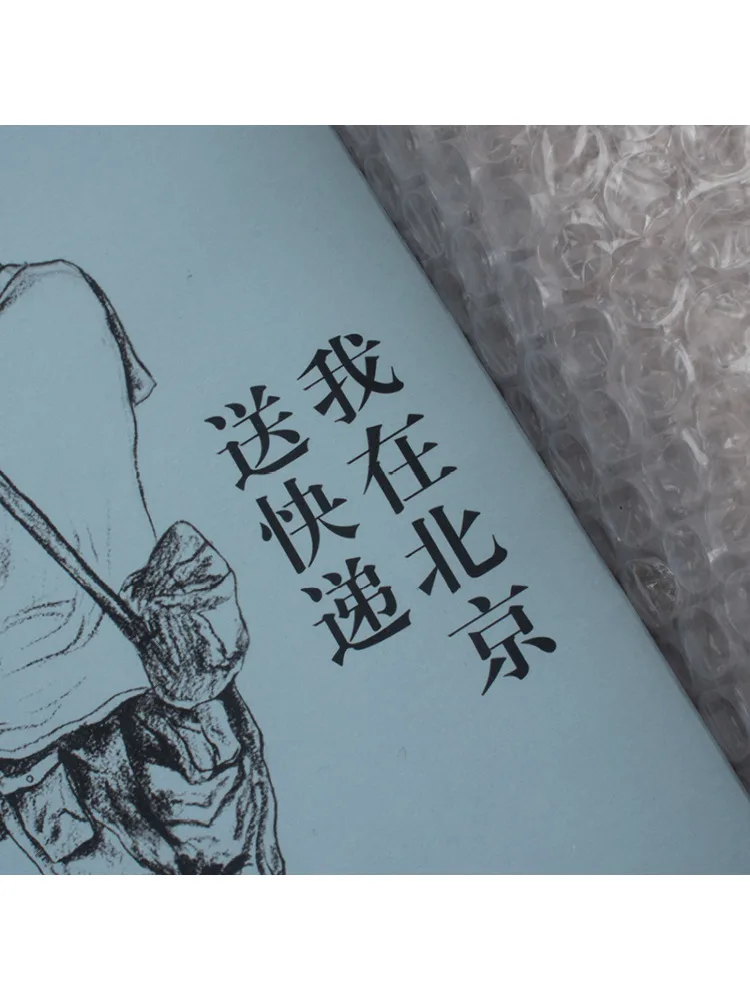 我在北京
送快递